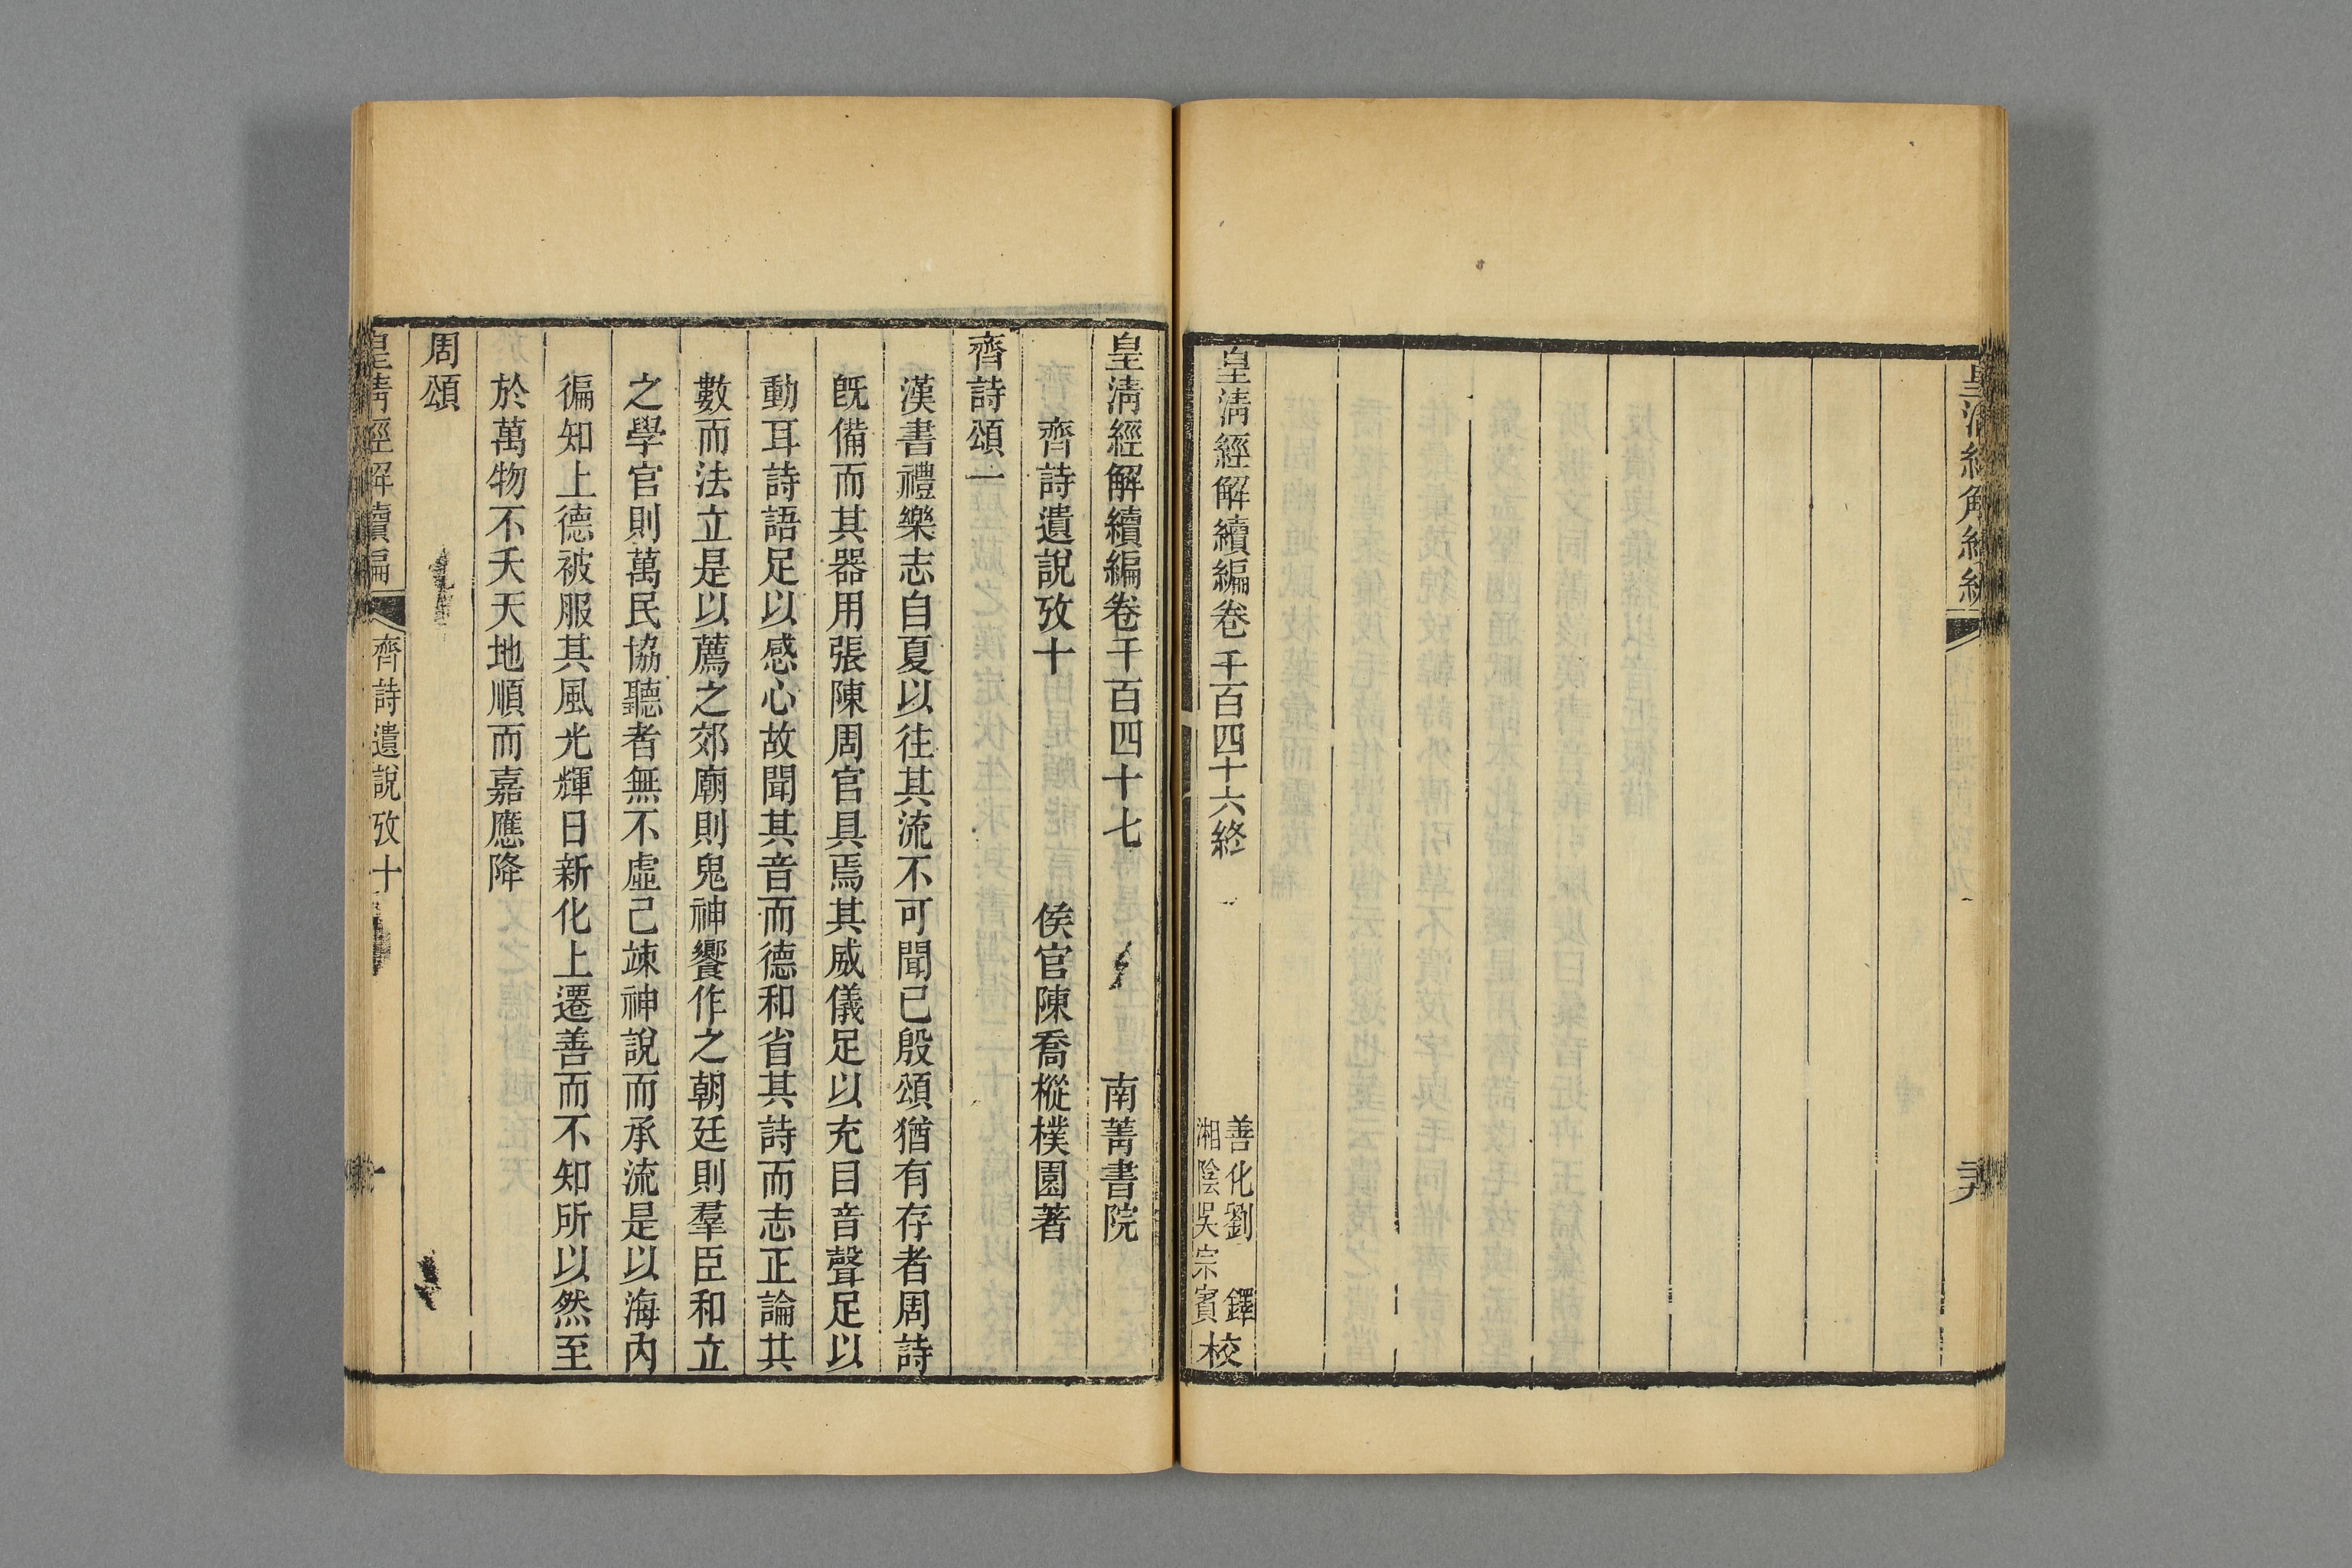 皇清經解續編卷千百四十六終
善化劉鐸
湘陰吳宗賓校
皇清經解續編卷千百四十七
南菁書院
齊詩遺說攷十
侯官陳喬樅樸園著
齊詩頌一
漢書禮樂志自夏以往其流不可聞已殷頌猶有存者周詩
旣備而其器用張陳周官具焉其威儀足以充目音聲足以
動耳詩語足以感心故聞其音而德和省其詩而志正論其
數而法立是以薦之郊廟則鬼神饗作之朝廷則羣臣和立
之學官則萬民協聽者無不虛己竦神說而承流是以海內
徧知上德被服其風光輝日新化上遷善而不知所以然至
於萬物不夭天地順而嘉應降
周頌
皇清經解續編
齊詩遺說攷十
一